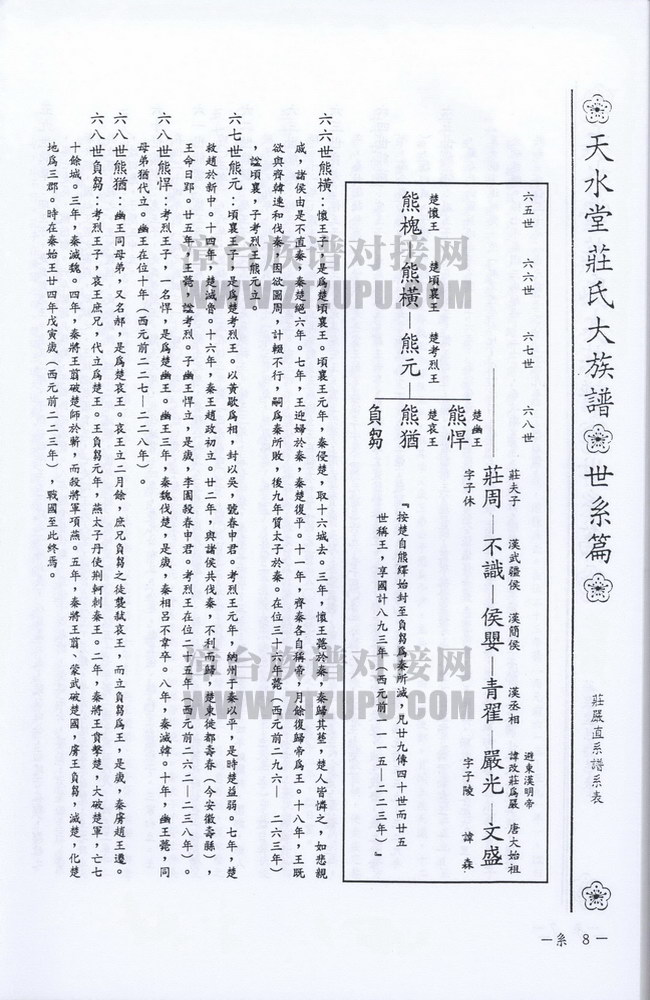 天水堂莊氏大族譜 世系篇
莊嚴直系譜系表
一系 8 一
六五世 六六世 六七世 六八世
楚懷王 楚頃襄王 楚考烈王 楚幽王
熊槐—熊橫—熊元—熊悍
楚哀王
熊猶
負芻
莊夫子 漢武疆侯 漢簡侯 漢丞相 避東漢明帝諱改莊爲嚴 唐大始祖
莊周—不識—侯嬰—青翟—嚴光—文盛
字子休 字子陵 諱森
『按楚自熊繹始封至負芻爲秦所滅，凡廿九傳四十世而廿五
世稱王，享國計八九三年（西元前一一一五—二二三年）』
六六世熊橫：懷王子，是爲楚頃襄王。頃襄王元年，秦侵楚，取十六城去。三年，懷王薨於秦，秦歸其莖，楚人皆憐之，如悲親
戚，諸侯由是不直秦，秦楚絕六年。七年，王迎婦於秦，秦楚復平。十一年，齊秦各自稱帝，月餘復歸帝爲王。十八年，王既
欲與齊韓連和伐秦，因欲圖周，計輟不行，嗣爲秦所敗，後九年質太子於秦。在位三十六年薨（西元前二九六—二六三年）
，諡頃襄，子考烈王熊元立。
六七世熊元：頃襄王子，是爲楚考烈王。以黄歇爲相，封以吳，號春申君。考烈王元年，納州于秦以平，是時楚益弱。七年，楚
救趙於新中。十四年，楚滅魯。十六年，秦王趙政初立。廿二年，與諸侯共伐秦，不利而歸，楚東徙都壽春（今安徽壽縣），
王命日郢。廿五年，王薨，諡考烈。子幽王悍立，是歲，李園殺春申君。考烈王在位二十五年（西元前二六二—二三八年）。
六八世熊悍：考烈王子，一名悍，是爲楚幽王。幽王三年，秦魏伐楚，是歲，秦相呂不韋卒。八年，秦滅韓。十年，幽王薨，同
母弟猶代立。幽王在位十年（西元前二二七—二二八年）。
六八世熊猶：幽王同母弟，又名郝，是爲楚哀王。哀王立二月餘，庶兄負芻之徒襲弒哀王，而立負芻爲王，是歲，秦虜趙王遷。
六八世負芻：考烈王子，哀王庶兄，代立爲楚王。王負芻元年，燕太子丹使荆軻刺秦王。二年，秦將王賁擊楚，大破楚軍，亡七
十餘城。三年，秦滅魏。四年，秦將王翦破楚師於蘄，而殺將軍項燕。五年，秦將王翦、蒙武破楚國，虜王負芻，滅楚，化楚
地爲三郡。時在秦始王廿四年戊寅歲（西元前二二三年），戰國至此終焉。
漳台族谱对接网
WWW.ZTZUPU.COM
漳台族谱对接网
WWW.ZTZUPU.COM